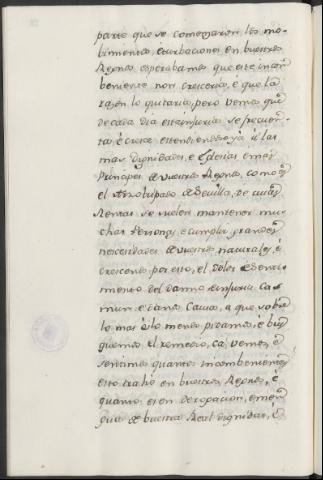 parte que se comenzaron los mo-
bimientos, e turbaciones en buestros
Regnos esperabamos que este incon
beniente non creceria, é que la
razon lo quitaria, pero vemos que
de cada dia esta injuria se
ta é crece estendiendose ya á las
mas dignidades, e Eglesias e mas
Principes de vuestros Regnos, como es
el Arzobispado de Sevilla, de cuias
Rentas se suelen mantener mu-
chas Personas, e cumplir grandes
necesidades de vuestros naturales, é
crescenos por esto, el dolor e senti-
miento del danno e injuria Co-
mun e damos Causa, a que sobre
lo mas ó lo menos pidamos, e bus
quemos el remedio, Ca vemos, é
sentimos quantos incombenientes
esto trahe en buestros Regnos, é
quanto es en derogacion, e men
gua de buestra Real dignidad, é